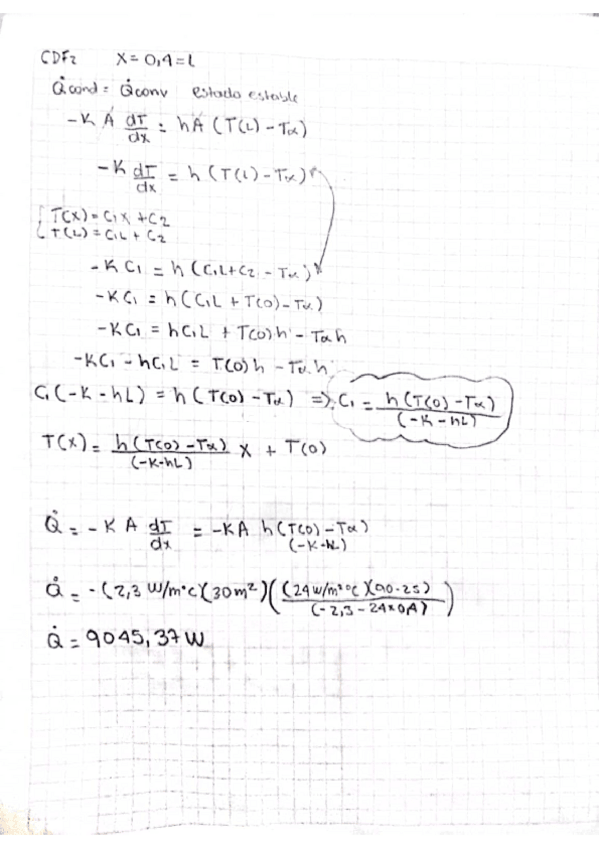 CDF2 X = 0,4 = L
Q̇cond = Q̇conv estado estable
-K A dT/dx = hA (T(L) - Tα)
-K dT/dx = h (T(L) - Tα)
T(x) = C1x + C2
T(L) = C1L + C2
-K C1 = h (C1L + C2 - Tα)
-K C1 = h (C1L + T(0) - Tα)
-K C1 = hC1L + T(0)h - Tαh
-KC1 - hC1L = T(0)h - Tαh
C1 (-K - hL) = h (T(0) - Tα) => C1 = h (T(0) - Tα)/(-K - hL)
T(x) = h (T(0) - Tα)/(-K-hL) x + T(0)
Q̇ = -K A dT/dx = -KA h(T(0) - Tα)/(-K-hL)
Q̇ = -(2,3 W/m°C)(30m²)((24W/m²°C)(90-25)/(-2,3-24*0,4))
Q̇ = 9045,37 W